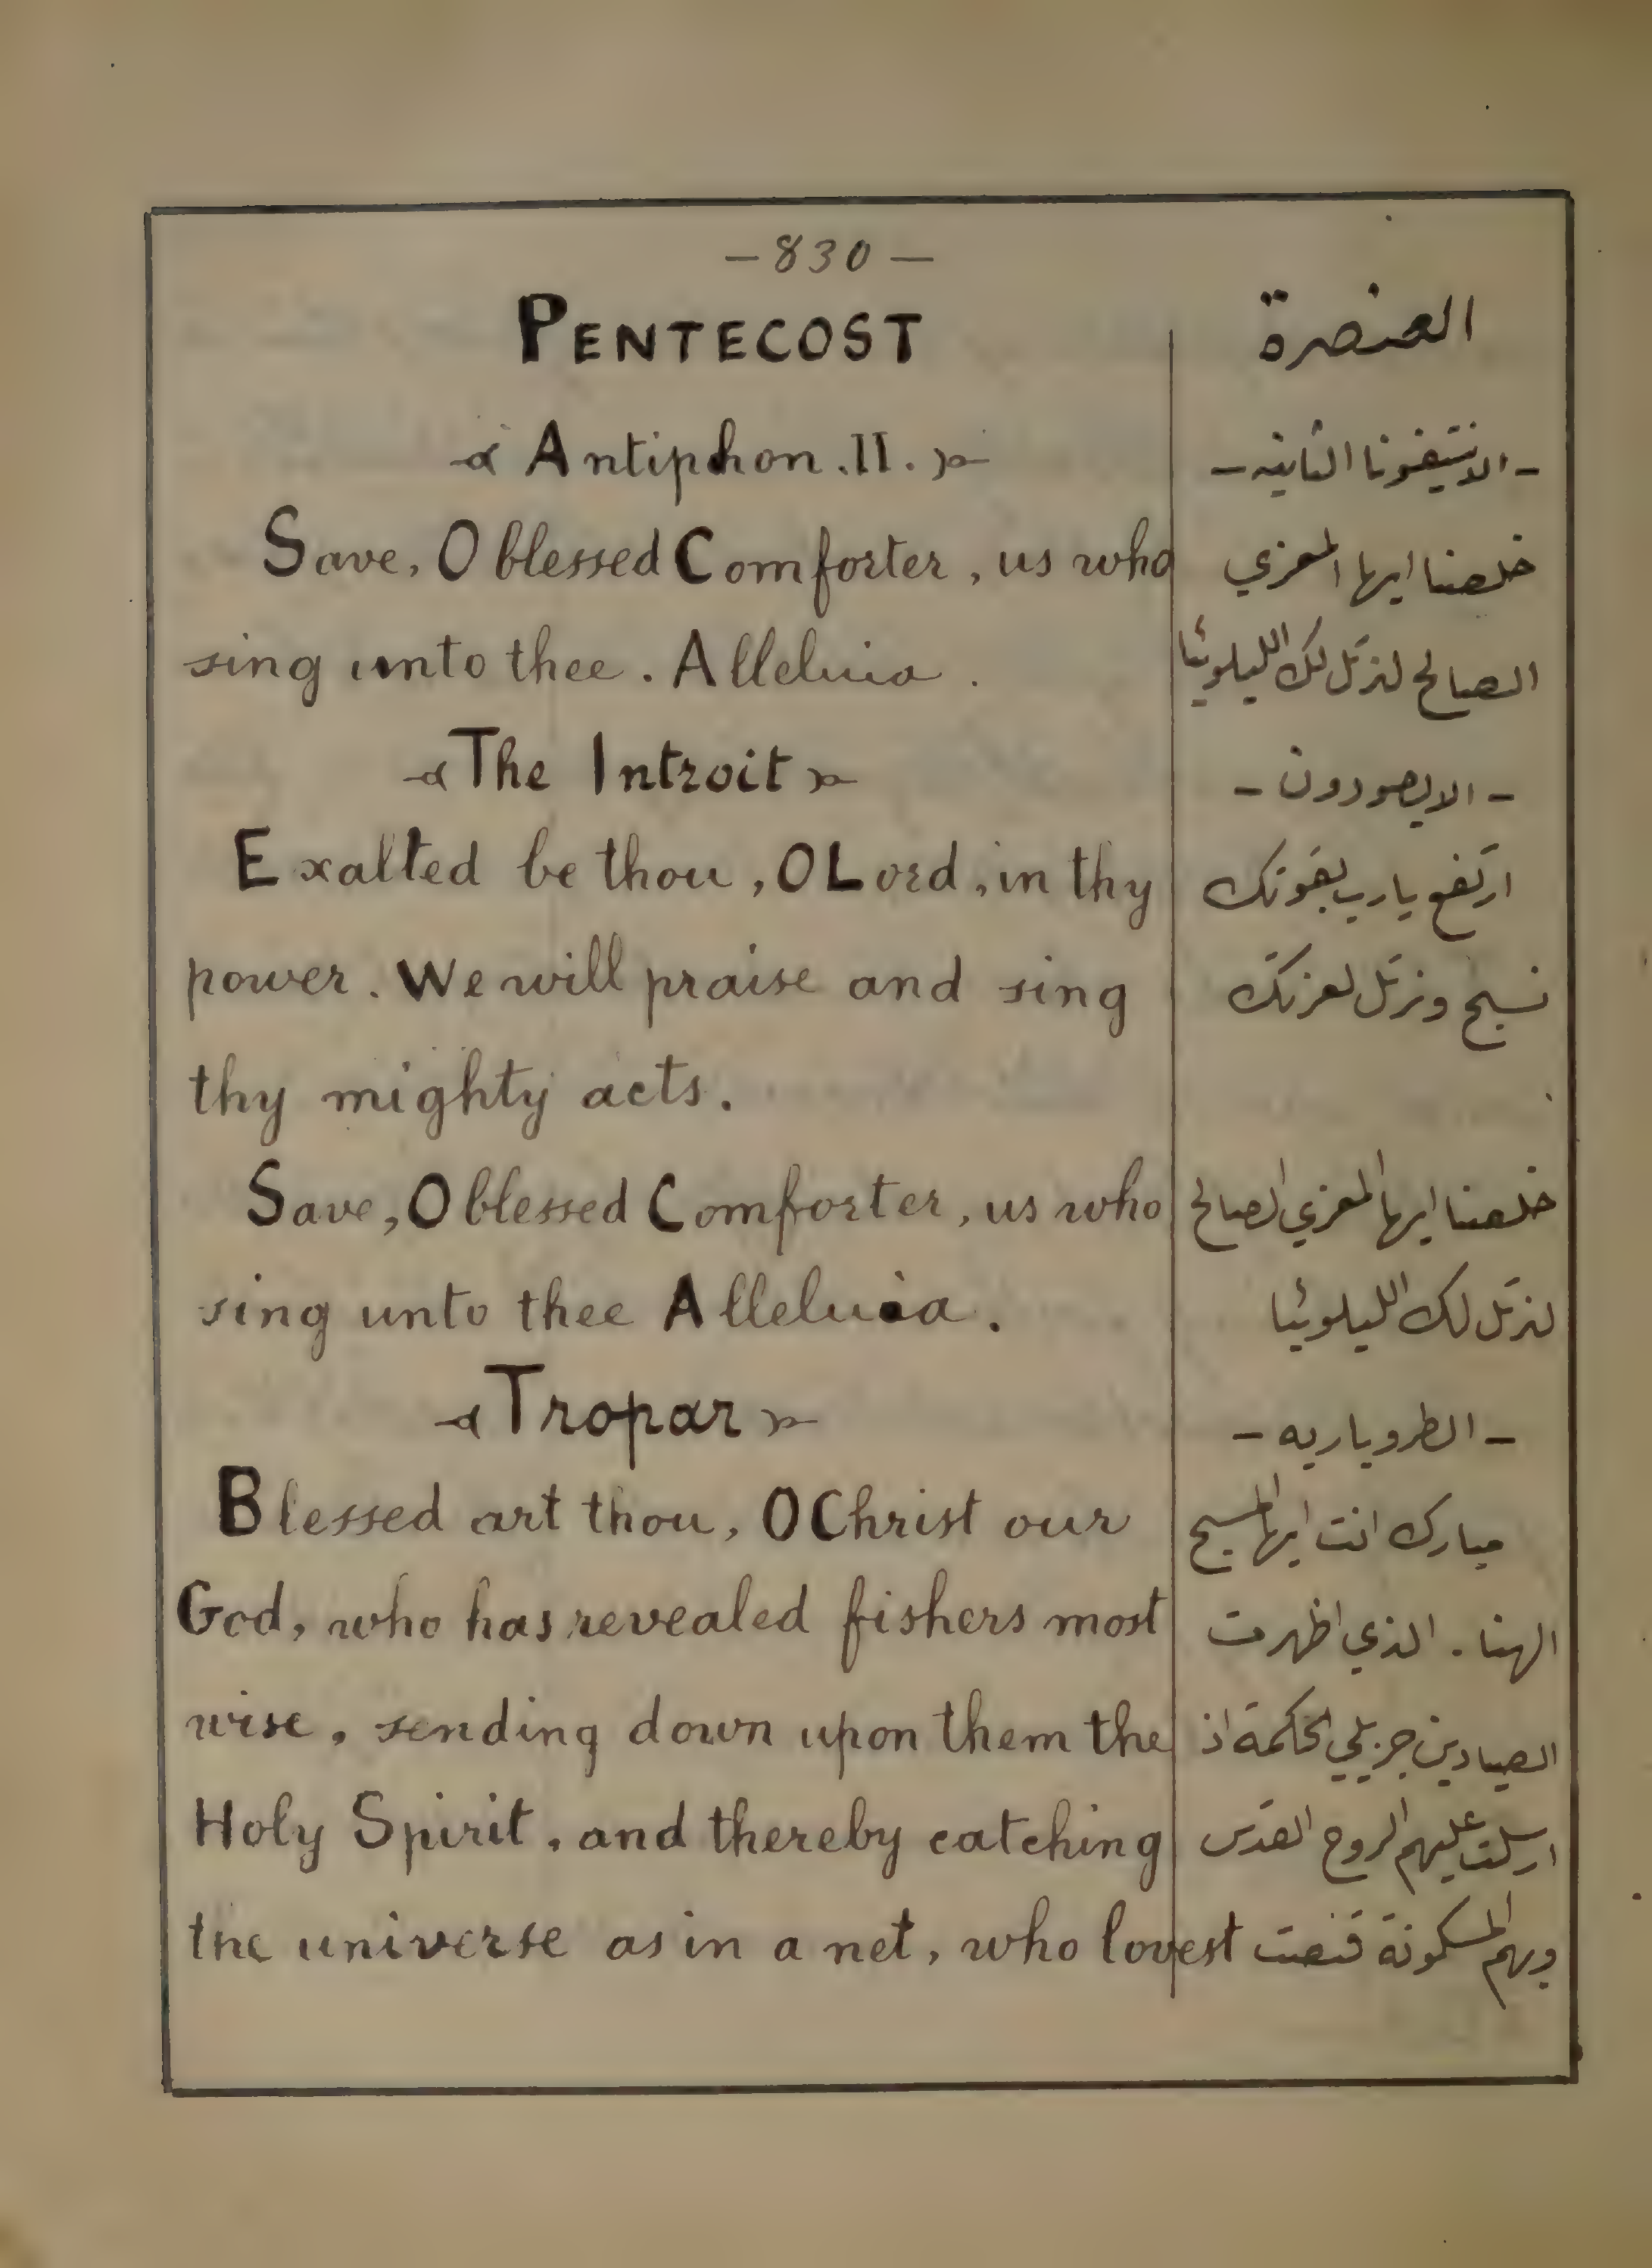 –830–
PENTECOST
Antiphon .II.
Save, O blessed Comforter, us who
sing unto thee. Alleluia.
The Introit
Exalted be thou, O Lord, in thy
power. We will praise and sing
thy mighty acts.
Save, O blessed Comforter, us who
sing unto thee Alleluia.
Tropar
Blessed art thou, O Christ our
God, who has revealed fishers most
wise, sending down upon them the
Holy Spirit, and thereby catching
the universe as in a net, who lovest
العنصرة
- الانتيفونا الثانيه -
خلصنا ايها المعزي
الصالح لنرتل لك الليلوئيا
- الايصودون -
ارتفع يارب بقوتك
نسبح ونرتل لعزتك
خلصنا ايها المعزي الصالح
لنرتل لك الليلوئيا
- الطروباريه -
مبارك انت ايها المسيح
الهنا. الذي اظهرت
الصيادين جزيلي الحكمة اذ
ارسلت عليهم الروح القدس
وبهم المسكونة قنصت